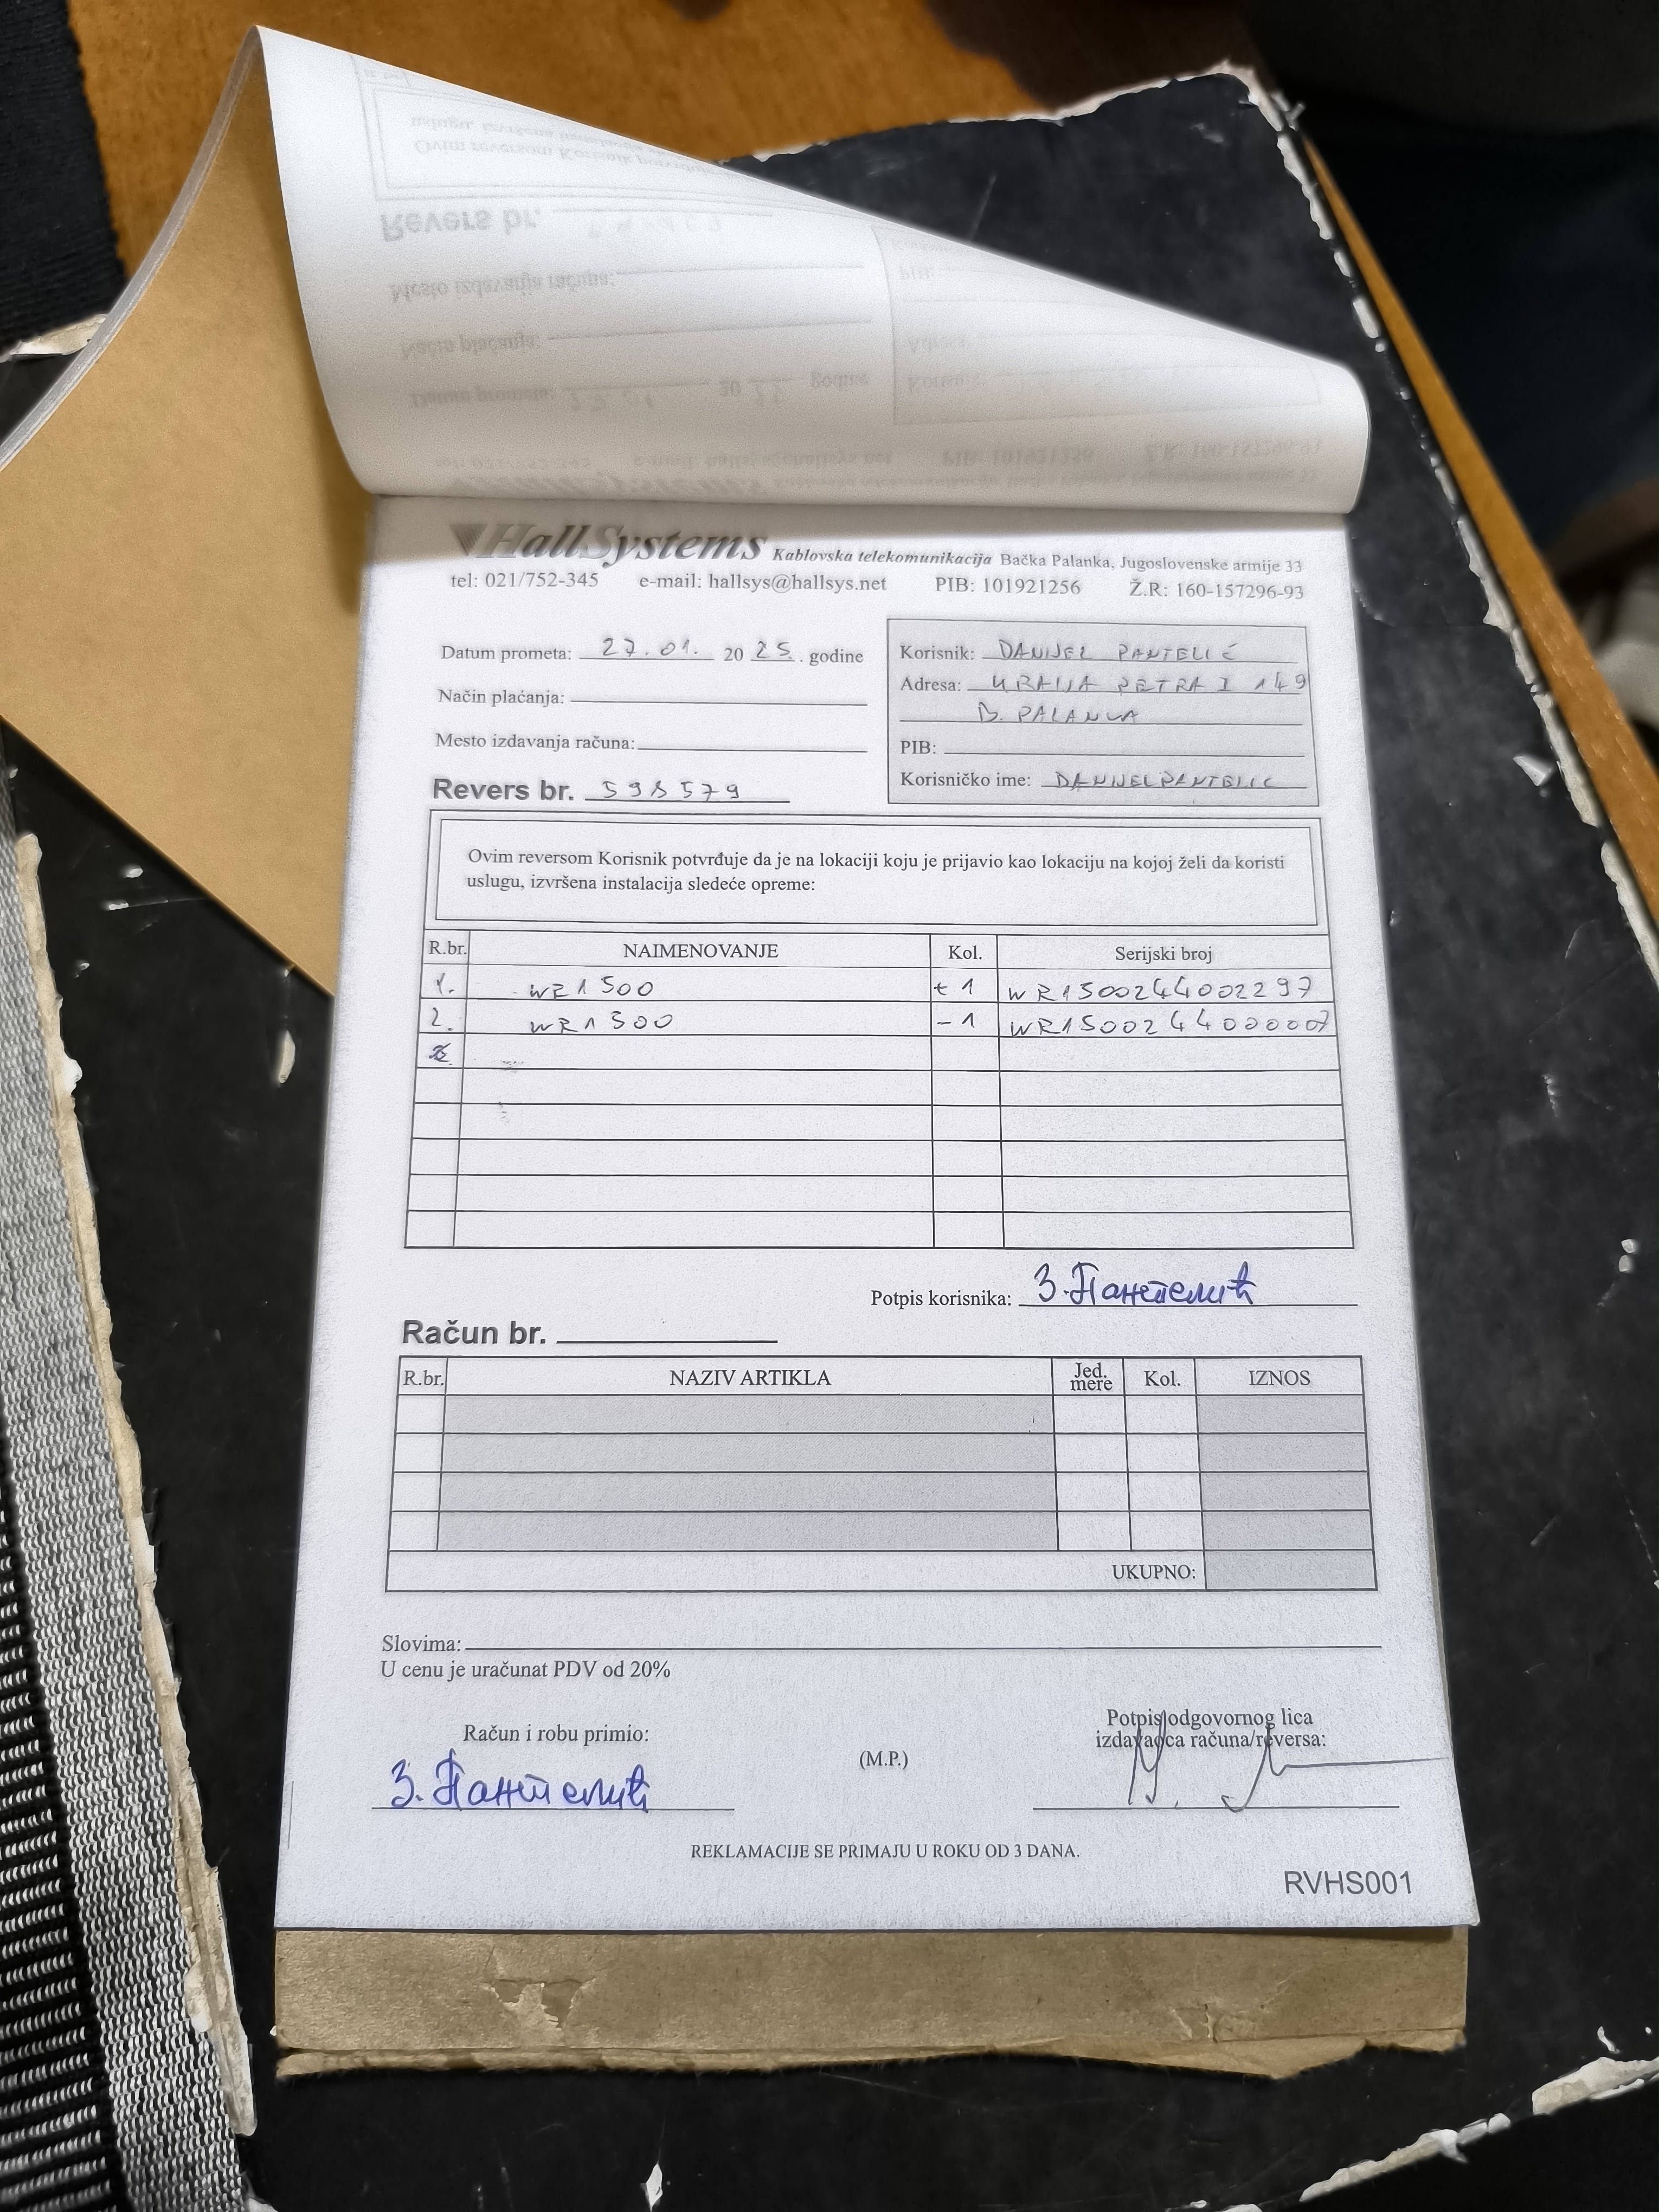 HallSystems Kablovska telekomunikacija Bačka Palanka, Jugoslovenske armije 33
tel: 021/752-345 e-mail: hallsys@hallsys.net PIB: 101921256 Ž.R: 160-157296-93
Datum prometa: 27.01. 20 25. godine
Način plaćanja:
Mesto izdavanja računa:
Revers br. 598579
Korisnik: DANIJEL PANTELIĆ
Adresa: KRALJA PETRA I 149
B. PALANKA
PIB:
Korisničko ime: DANIJELPANTELIC
Ovim reversom Korisnik potvrđuje da je na lokaciji koju je prijavio kao lokaciju na kojoj želi da koristi
uslugu, izvršena instalacija sledeće opreme:
R.br. NAIMENOVANJE Kol. Serijski broj
1. WR1500 +1 WR1500244002297
2. WR1500 -1 WR1500244000007
Potpis korisnika: З. Пантелић
Račun br.
R.br. NAZIV ARTIKLA Jed. mere Kol. IZNOS
UKUPNO:
Slovima:
U cenu je uračunat PDV od 20%
Račun i robu primio:
З. Пантелић
(M.P.)
Potpis odgovornog lica
izdavaoca računa/reversa:
REKLAMACIJE SE PRIMAJU U ROKU OD 3 DANA.
RVHS001